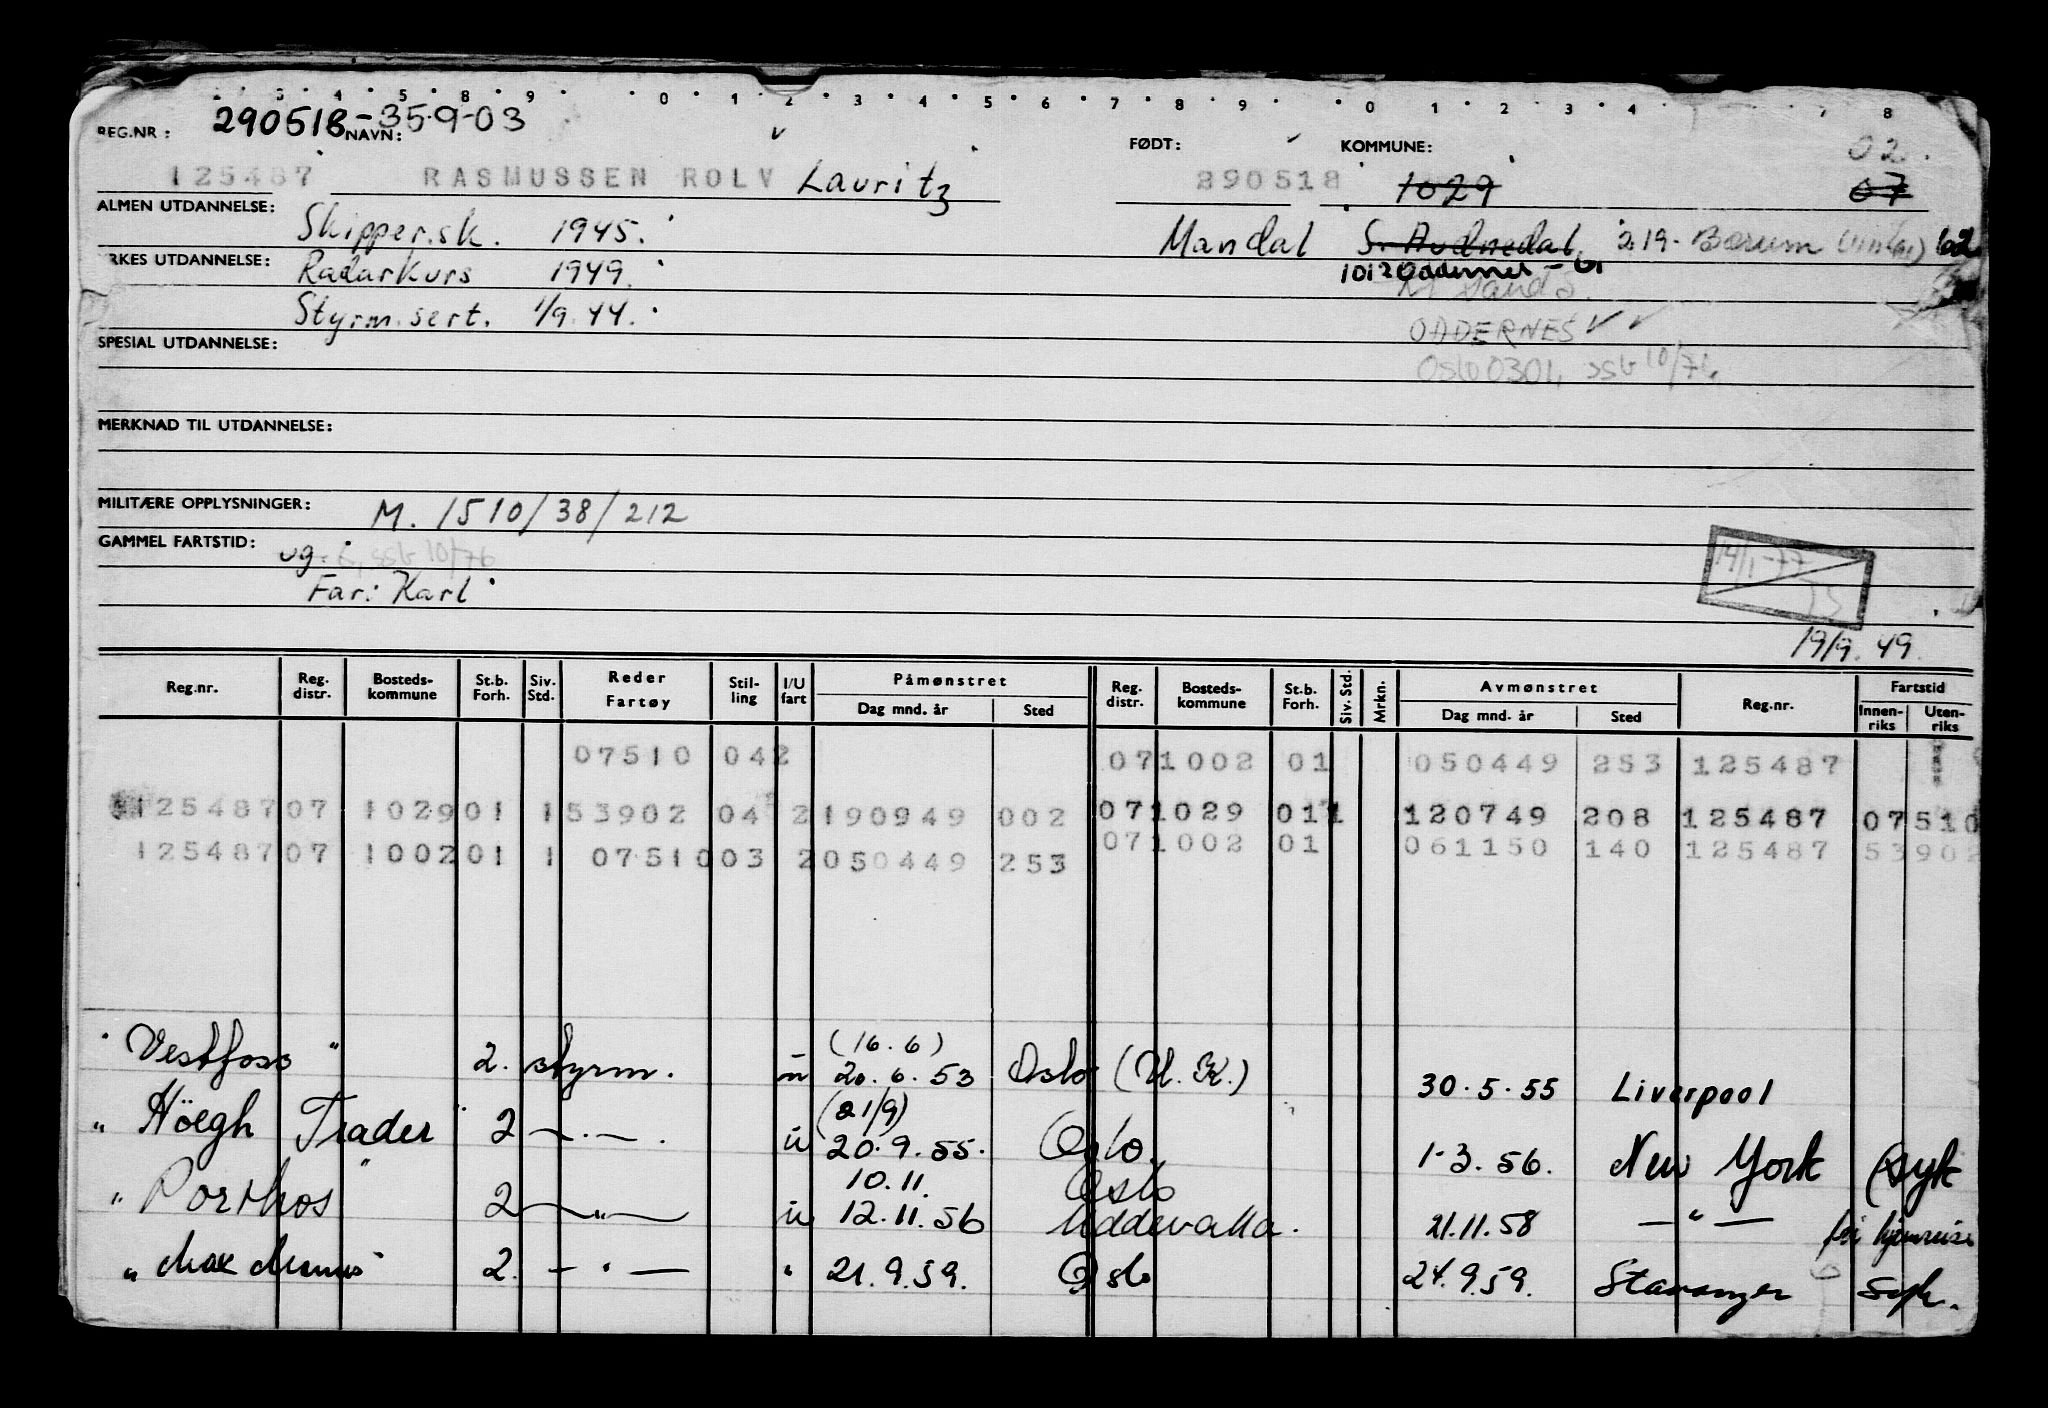 2 3 4 5 8 9 0 1 2 3 4 5 6 7 8 9 0 1 2 3 4 7 8
290518-35.9-03
REG.NR: NAVN: FØDT: KOMMUNE: 02.
125487 RASMUSSEN ROLV Lauritz 290518 1029 07
ALMEN UTDANNELSE: Skipper.sk. 1945. Mandal S. Audnedal 219- Bærum 02
YRKES UTDANNELSE: Radarkurs 1949. 1012 Oddernes - 01
Styrm. sert. 1/9.44. Kr sand S.
SPESIAL UTDANNELSE: ODDERNES
Oslo 0301, ssb 10/76
MERKNAD TIL UTDANNELSE:
MILITÆRE OPPLYSNINGER: M. 1510/38/212
GAMMEL FARTSTID: ug. ssb 10/76
14/1-77
Far: Karl
19/9.49.
Reg.nr. Reg. distr. Bosteds-kommune St.b. Forh. Siv. Std. Reder Fartøy Stil-ling I/U fart Påmønstret Dag mnd. år Sted Reg. distr. Bosteds-kommune St.b. Forh. Siv. Std. Mrkn. Avmønstret Dag mnd. år Sted Reg.nr. Fartstid Innen-riks Uten-riks
07510 042 071002 01 050449 253 125487
125487 07 1029 01 1 53902 04 2 190949 002 071029 01 1 120749 208 125487 07510
125487 07 1002 01 1 07510 03 2 050449 253 071002 01 061150 140 125487 53902
" Vestfoss " 2. styrm. u (16.6) 20.6.53 Oslo (U.K.) 30.5.55 Liverpool
" Höegh Trader " 2 —.—. u (21/9) 20.9.55. Oslo. 1-3.56. New York (syk
" Porthos " 2 —"— u 10.11. Oslo
12.11.56 Uddevalla. 21.11.58 —"— fri hjemreise
" 2. —"— " 21.9.59. Oslo 24.9.59. Stavanger syk.